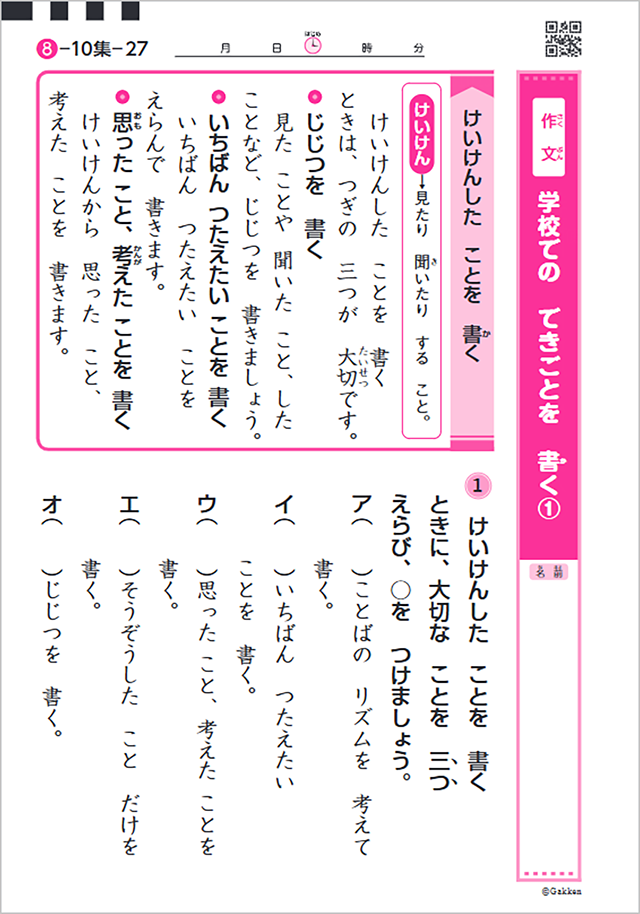 8-10集-27
月 日 はじめ 時 分
作文 さくぶん
学校での できごとを 書く① か
名前 なまえ
けいけんした ことを 書く か
けいけん→見たり 聞いたり する こと。 き
けいけんした ことを 書く
ときは、つぎの 三つが 大切です。 たいせつ
じじつを 書く
見た ことや 聞いた こと、した
ことなど、じじつを 書きましょう。
いちばん つたえたい ことを 書く
いちばん つたえたい ことを
えらんで 書きます。
思った こと、考えた ことを 書く おも かんが
けいけんから 思った こと、
考えた ことを 書きます。
1 けいけんした ことを 書く
ときに、大切な ことを 三つ
えらび、○を つけましょう。
ア( )ことばの リズムを 考えて
書く。
イ( )いちばん つたえたい
ことを 書く。
ウ( )思った こと、考えた ことを
書く。
エ( )そうぞうした こと だけを
書く。
オ( )じじつを 書く。
©Gakken